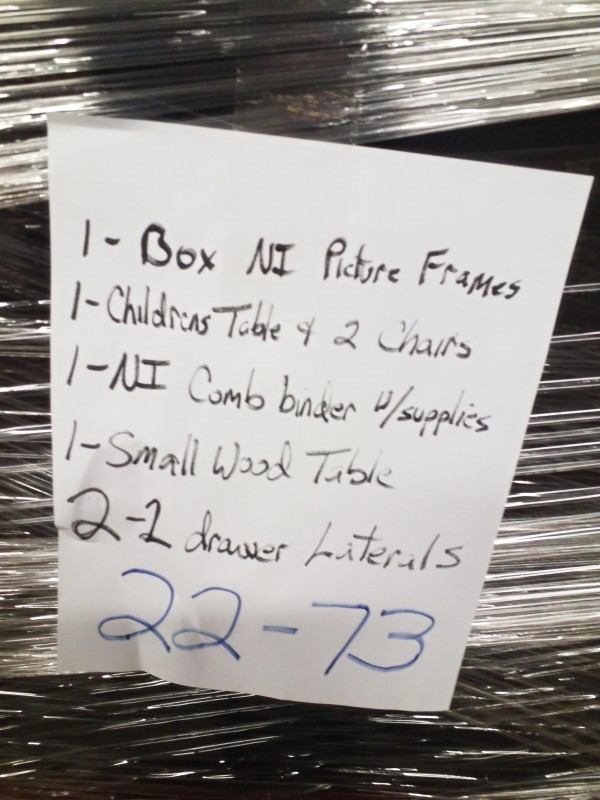 1- Box NI Picture Frames
1-Childrens Table & 2 Chairs
1-NI Comb binder w/supplies
1-Small Wood Table
2-2 drawer Laterals
22-73